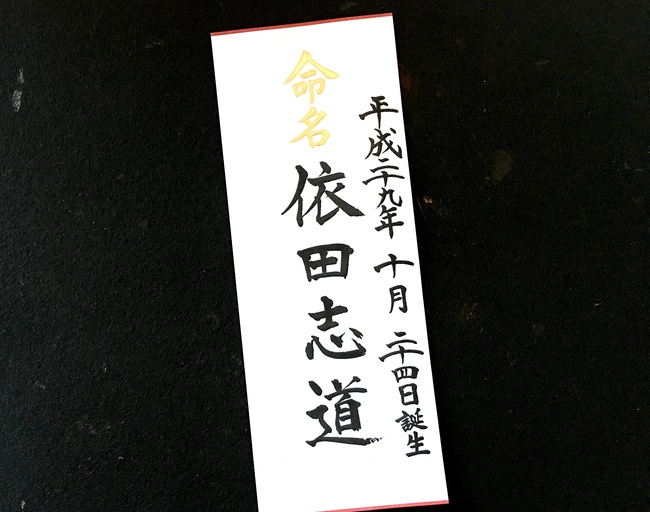 平成二十九年 十月 二十四日 誕生
命名 依田志道